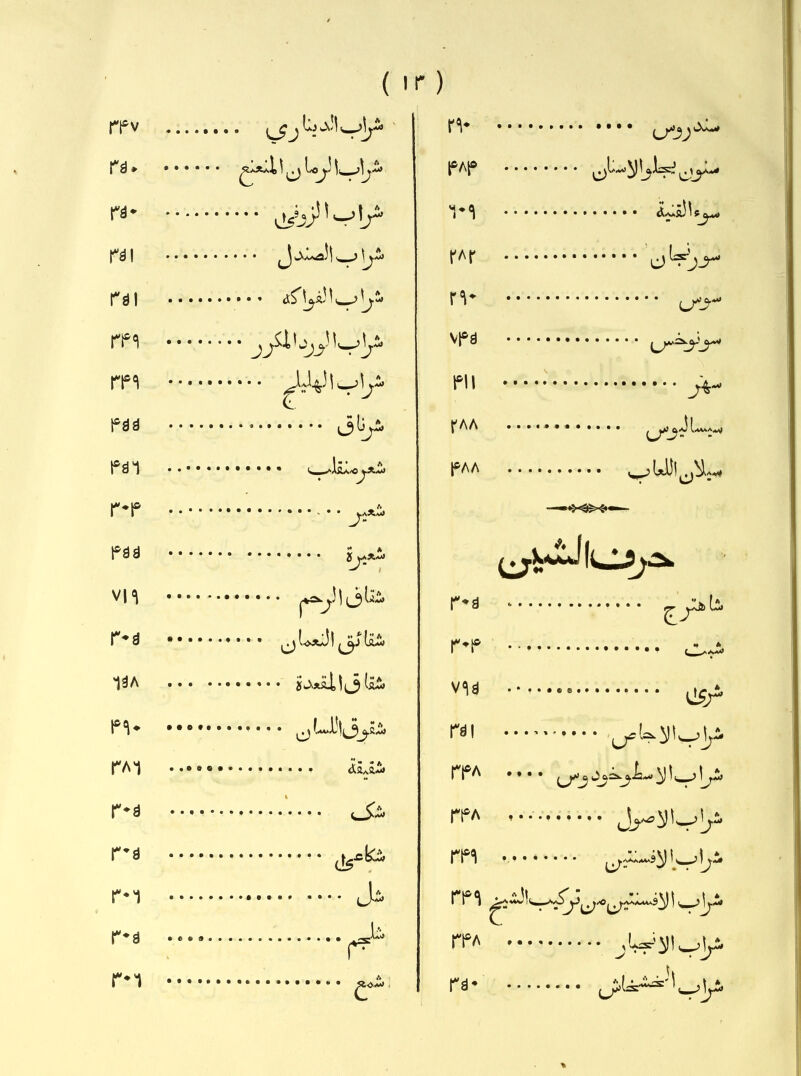 ( ١٢ )
سندروس ٢٩٠
سنون يجلو الاسنان ٤٨٤
سوء القنية ٦٠٩
سورنجان ٢٨٢
سوس ٢٩٠
سونوخس ٧٤٥
سهر ٤١١
سساليوس ٢٨٨
سيلان اللعاب ٤٨٨
حرف الشين
شاهترج ٢٠٥
شبث ٢٠٤
شري ٧٩٥
شراب الاجاص ٢٥١
شراب الاسطوخودوس ٢٤٨
شراب الاصول ٢٤٨
شراب الافسنتين ٢٤٩
شراب الافسنتين من تركيب الشيخ ٢٤٩
شراب الانجبار ٢٤٨
شراب الخشخاش ٢٥٠
شراب الدينارى ٢٤٧
شراب الرمان المنعنع ٢٥٠
شراب الزوفى ٢٥٠
شراب الصندل ٢٥١
شراب الفواكه ٢٥١
شراب الورد المكرر ٢٤٩
شراب الهليلج ٢٤٩
شرناق ٤٥٥
شعر منقلب ٤٥٦
شعير ٢٠٤
شعيرة ٤٥٥
شقاق الرحم ٧١٩
شقائق النعمان ٢٠٥
شقاق المقعدة ٦٥٨
شقوق اللسان ٤٩٠
شقيقة ٢٨٦
شك ٢٠٥
شكاعى ٢٠٥
شل ٢٠٦
شلجم ٢٠٥
شمع ٢٠٦